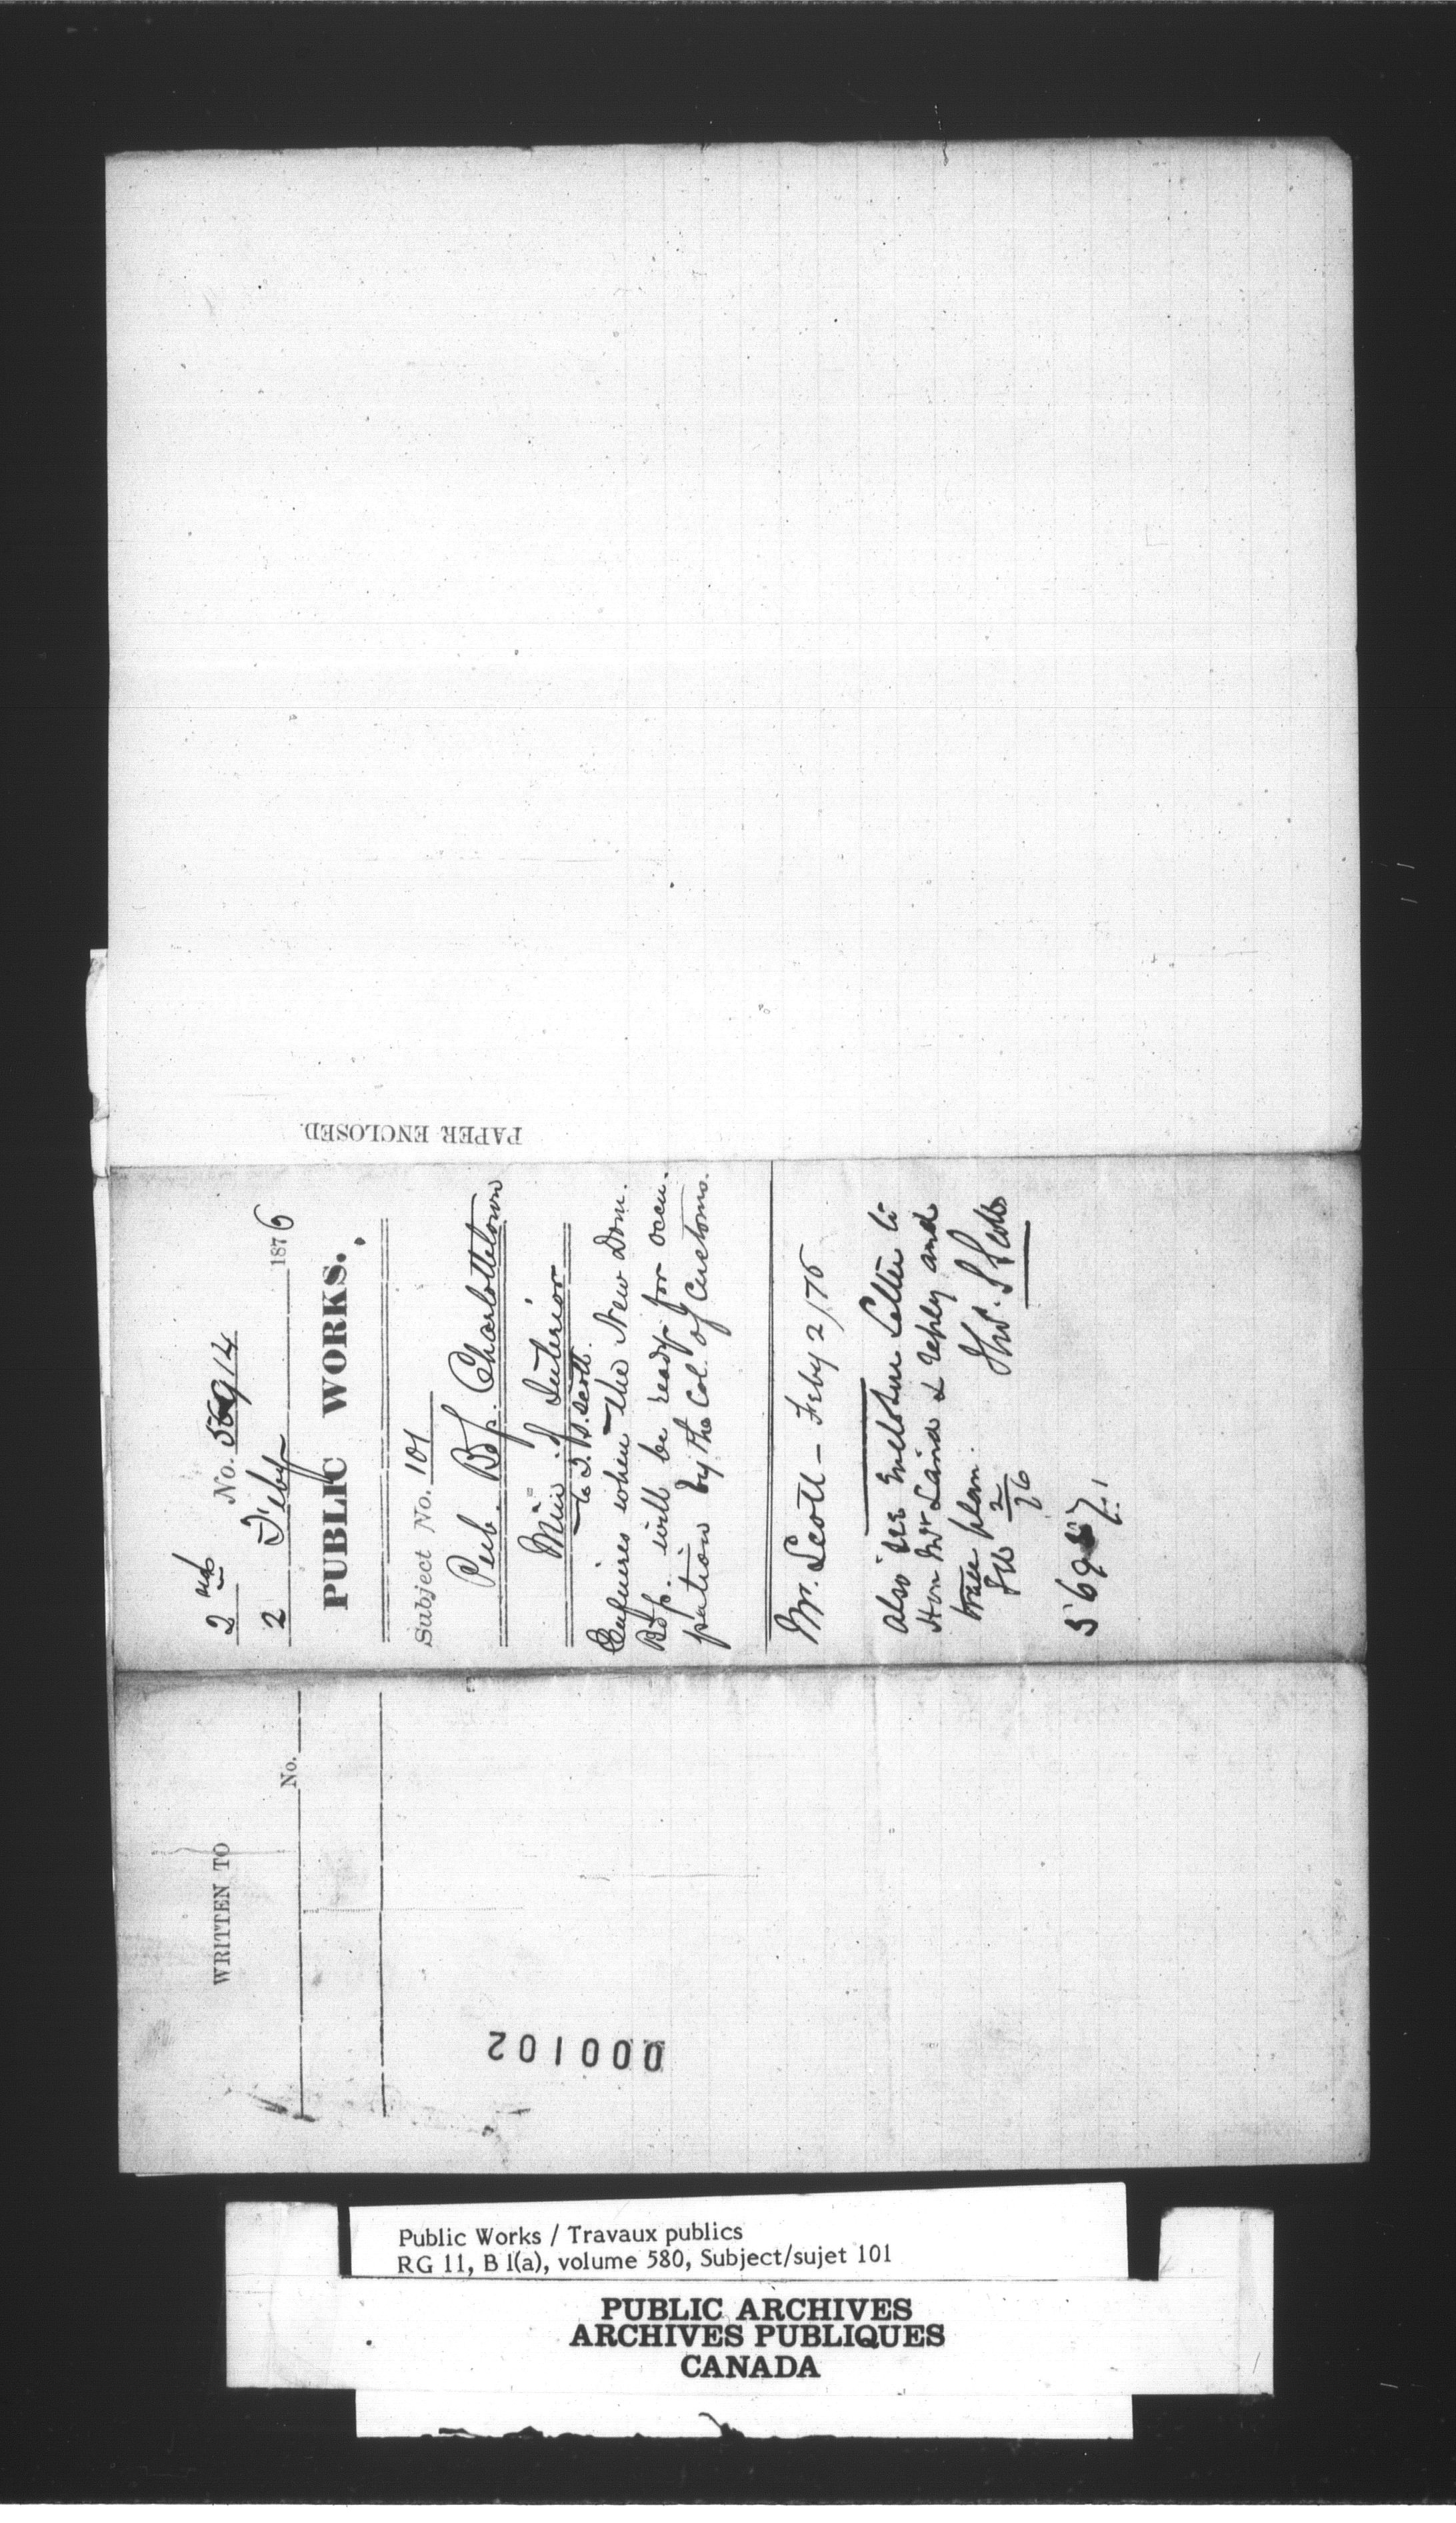 2nd No. 56914
2 Feby 1876
PUBLIC WORKS.
Subject No. 101
Pub. Bdgs. Charlottetown
Min. of Interior
to T. S. Scott.
Enquires when the New Dom.
Bdgs. will be ready for occu-
pation by the Col. of Customs.
Mr. Scott – Feby 2/76
Also see Enclosure Letter to
Hon Mr Laird & reply and
plan. Thos. S Scott
2
76
PAPER ENCLOSED.
WRITTEN TO
No.
000102
Public Works / Travaux publics
RG 11, B 1(a), volume 580, Subject/sujet 101
PUBLIC ARCHIVES
ARCHIVES PUBLIQUES
CANADA